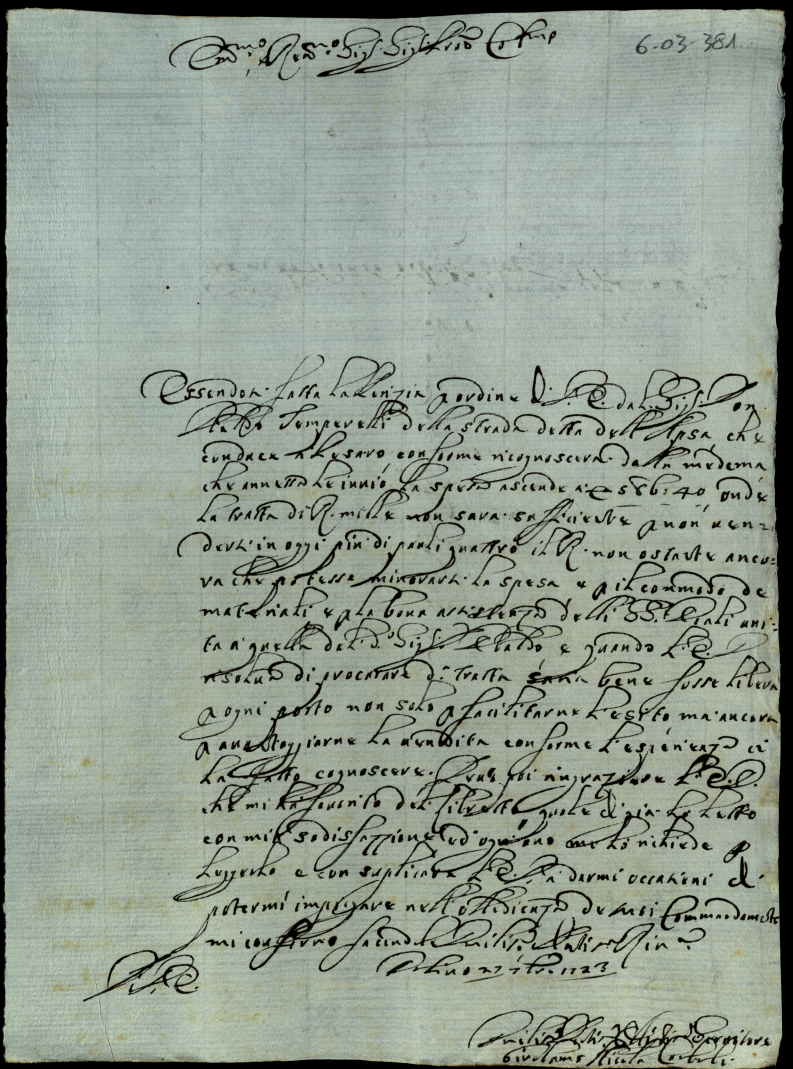 Em.mo, Rev.mo Sig.r Sig.r Pron Col.mo
6-03-381
Essendosi fatta la Perizia p ordine di V. E. dal Sig.r Don
Ubaldo Temperelli della strada detta dell' Apsa che
conduce a Pesaro conforme ricognoscerà dalla medema
che annetta le invio, la spesa ascende a 586:40 onde
la tratta di R. mille non sarà sufficiente p non ven-
dersi in oggi più di pauli quattro il R. non ostante anco-
ra che potesse minorarsi la spesa e p il commodo de
materiali e p la bona assistenza delli SS.ri uni-
ta a quella del d.o Sig.r Ubaldo e quando V. E.
risolva di procurare d.a tratta saria bene fosse libera
p ogni porto non solo p facilitarne l'esito ma ancora
p avantaggiarne la vendita conforme l'esperienza ci
ha fatto cognoscere. Devo poi ringraziare V. E.
che mi ha favorito del libretto quale di già ho letto
con mia sodisfazzione ed ogn'uno me lo richiede p
leggerlo e con suplicare V. E. a darmi occasioni di
potermi impiegare nell'obbedienza de suoi Commandamenti
mi confermo facendoli
Urbino 27 1723
V. E.
Servitore
Girolamo Nicola